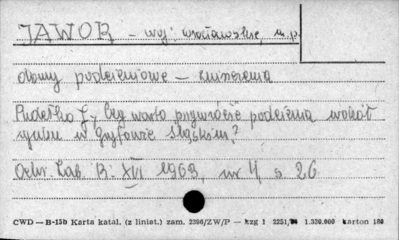 JAWOR - woj. wrocławskie, m.p.
domy podcieniowe - zniszczenia
Pudełko Z., Czy warto przywrócić podcienia wokół
rynku w Gryfowie Śląskim?
Ochr. Zab. R. XVI 1963, nr 4 s 26
CWD — B-15b Karta katal. (z liniat.) zam. 2306/ZW/P — kzg 1 2251, 1.330.000 karton 180